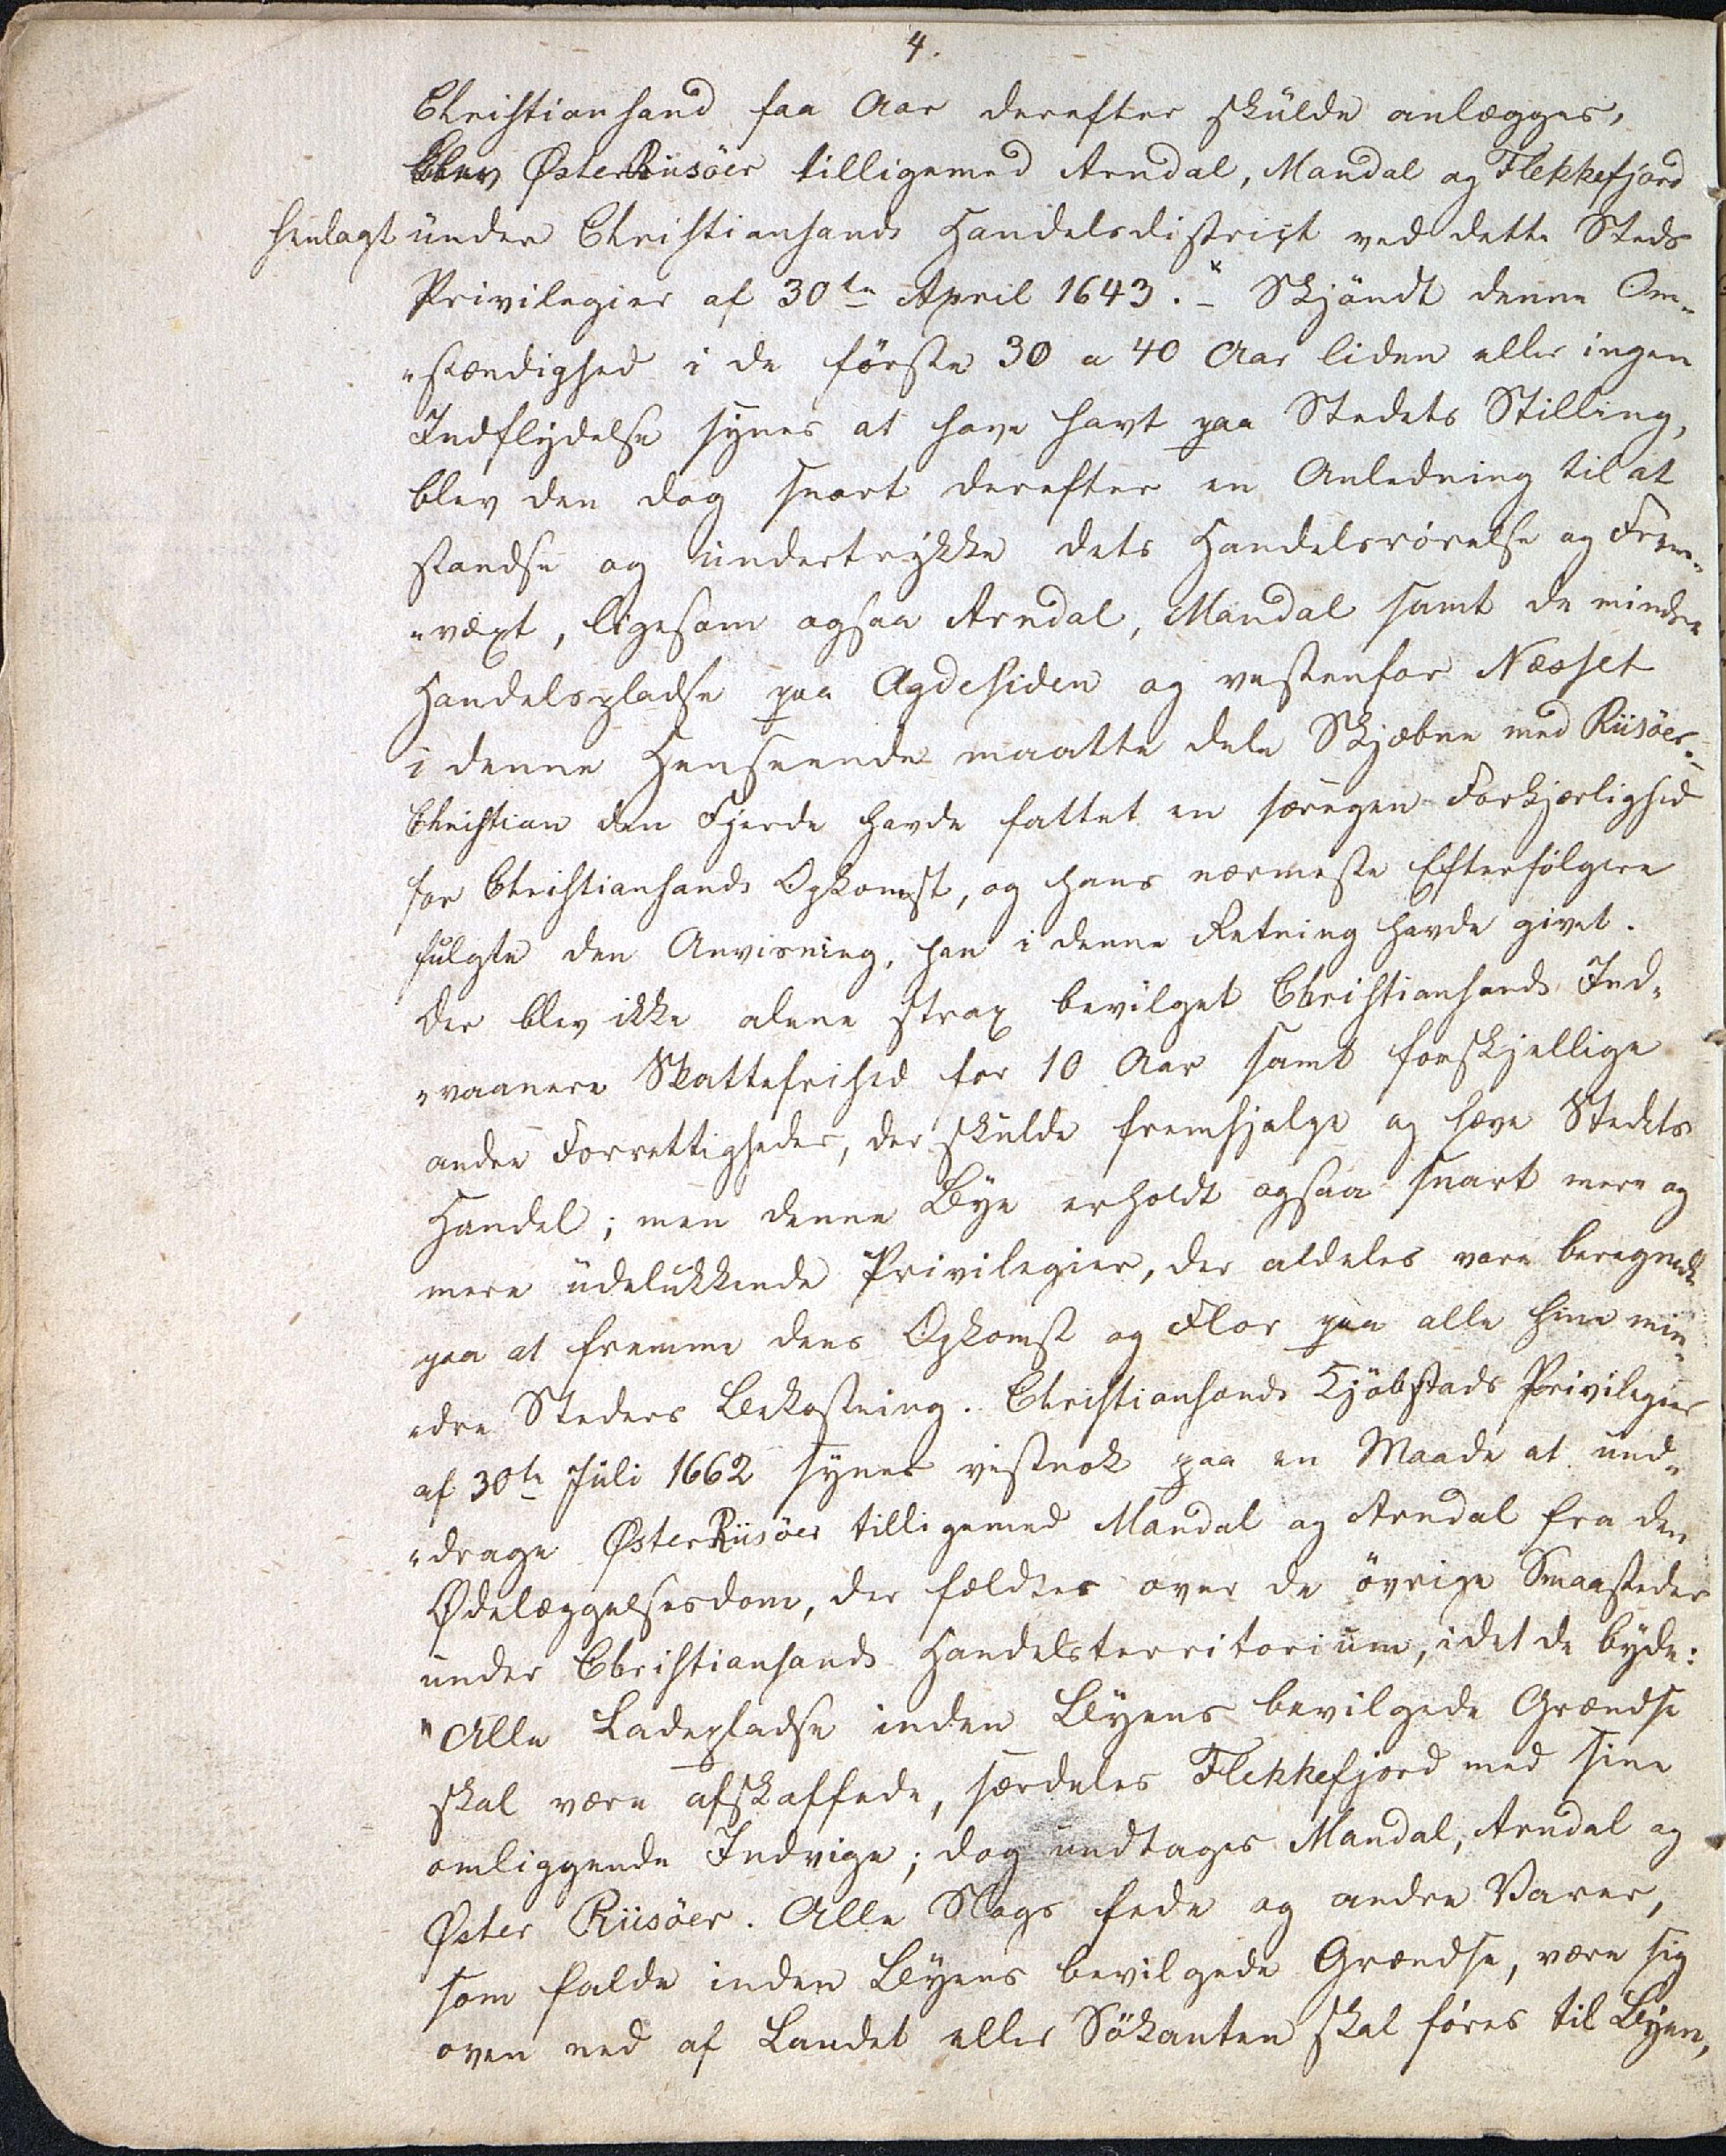 4.
Christiansand faa Aar derefter skulde anlægges,
blev ØsterRiisöer tilligemed Arndal, Mandal og Flekkefjord
henlagt under Christiansands Handelsdistrigt ved dette Steds
Privilegier af 30te April 1643.x – Skjöndt denne Om„
„stændighed i de förste 30 a 40 Aar liden eller ingen
Indflydelse synes at have havt paa Stedets Stilling,
blev den dog snart derefter en Anledning til at
standse og undertrykke dets Handelsrörelse og Frem„
„væxt, ligesom ogsaa Arndal, Mandal samt de mindre
Handelspladse paa Agdesiden og vestenfor Næsset
i denne Henseende maatte dele Skjæbne med Riisöer. –
Christian den Fjerde havde fattet en særegen Forkjærlighed
for Christiansands Opkomst, og hans nærmeste Efterfölgere
fulgte den Anvisning, han i denne Retning havde givet.
Der blev ikke alene strax bevilget Christiansands Ind„
„vaanere Skattefrihed for 10 Aar samt forskjellige
andre Forrettigheder, der skulde fremhjelpe og hæve Stedets
Handel; men denne Bye erholdt ogsaa snart mere og
mere udelukkende Privilegier, der aldeles vare beregnede
paa at fremme dens Opkomst og Flor paa alle hine min„
„dre Steders Bekostning. Christiansands Kjöbstads Privilegier
af 30te Juli 1662 synes vistnok paa en Maade at und„
„drage ØsterRiisöer tilligemed Mandal og Arndal fra den
Ødelæggelsesdom, der fældtes over de övrige Smaasteder
under Christiansands Handelsterritorium, idet de byde:
"Alle Ladepladse inden Byens bevilgede Grændse
skal være afskaffede, særdeles Flekkefjord med sine
omliggende Indvige; dog undtages Mandal, Arndal og
Øster Riisöer. Alle Slags fede og andre Varer,
som falde inden Byens bevilgede Grændse, være sig
oven ned af Landet eller Sökanten skal föres til Byen,